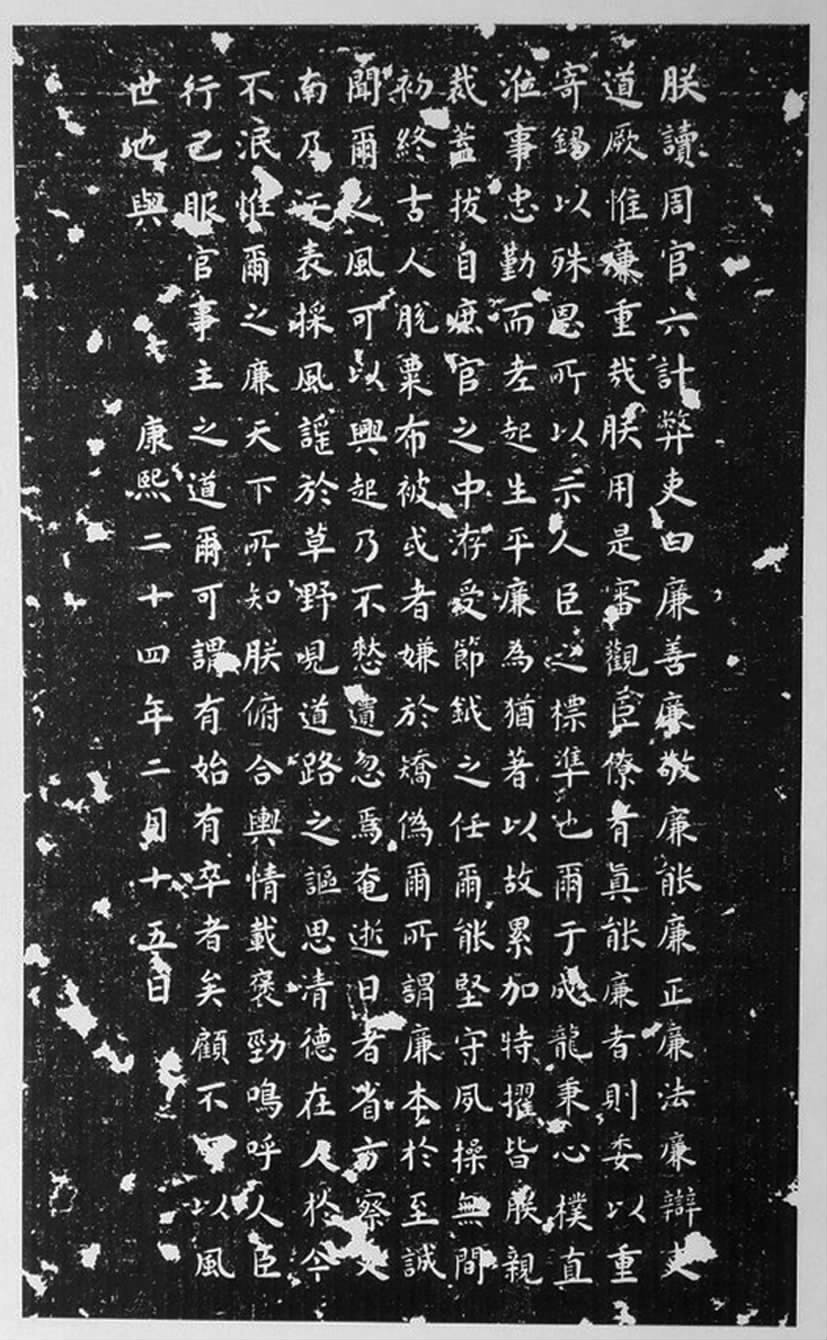 朕讀周官六計弊吏曰廉善廉敬廉能廉正廉法廉辯吏
道厥惟廉重哉朕用是審觀臣僚有真能廉者則委以重
寄錫以殊恩所以示人臣之標準也爾于成龍秉心樸直
涖事忠勤而考起生平廉為猶著以故累加特擢皆朕親
裁蓋拔自庶官之中洊受節鉞之任爾能堅守夙操無間
初終古人脫粟布被或者嫌於矯偽爾所謂廉本於至誠
聞爾之風可以興起乃不憖遺忽焉奄逝日者省方察吏
南乃 表採風謠於草野覗道路之謳思清德在人於今
不泯惟爾之廉天下所知朕俯合輿情載褒勁嗚呼人臣
行己服官事主之道爾可謂有始有卒者矣顧不 以風
世也與 康熙二十四年二月十五日